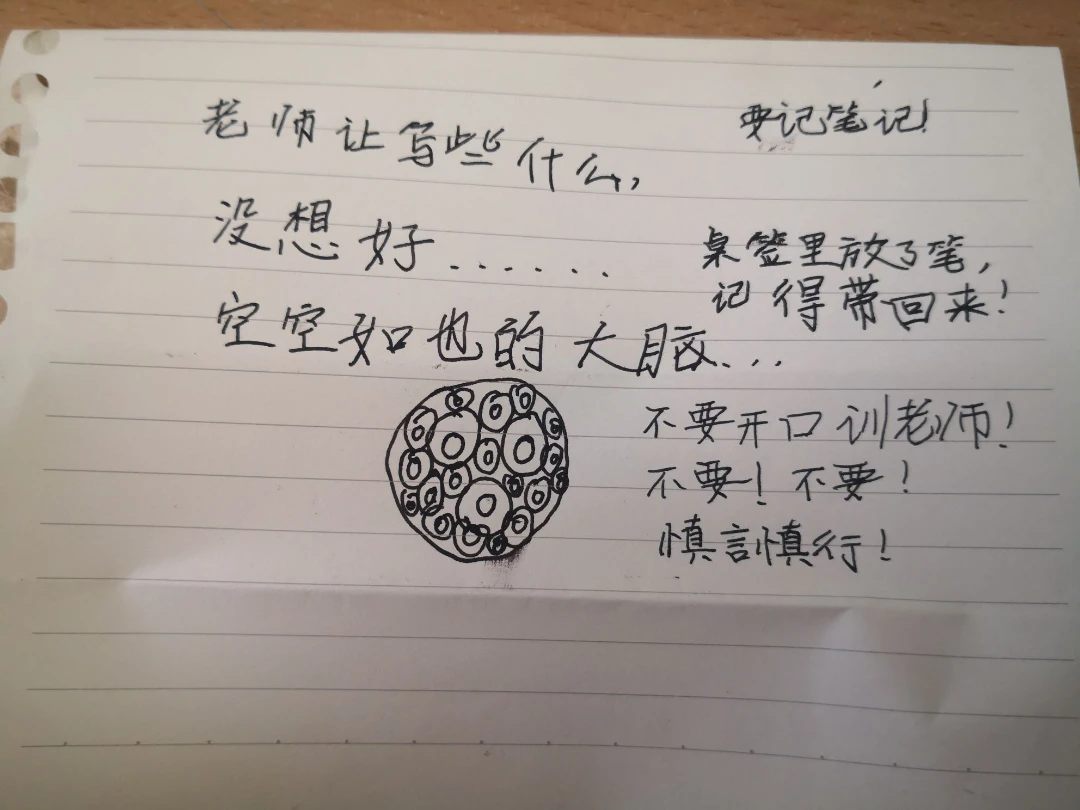 老师让写些什么,
没想好.......
空空如也的大脑...
要记笔记!
桌签里放了笔,
记得带回来!
不要开口训老师!
不要!不要!
慎言慎行!